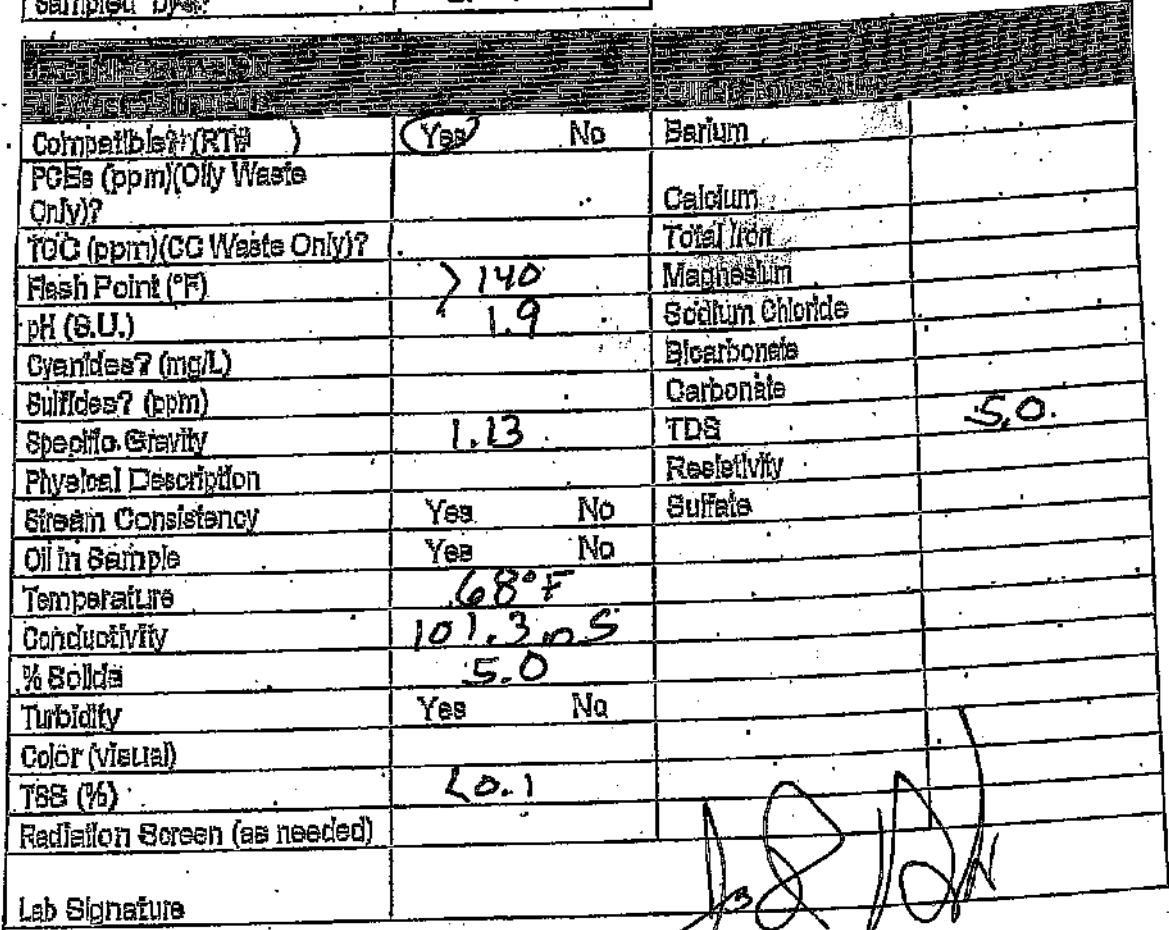 Sampled by
All Waste Shipments
Compatible? (RT# ) Yes No Barium
PCBs (ppm)(Oily Waste
Only)? Calcium
TOC (ppm)(CC Waste Only)? Total Iron
Flash Point (°F) >140 Magnesium
pH (S.U.) 1.9 Sodium Chloride
Cyanides? (mg/L) Bicarbonate
Sulfides? (ppm) Carbonate
Specific Gravity 1.13 TDS 5.0
Physical Description Resistivity
Stream Consistency Yes No Sulfate
Oil in Sample Yes No
Temperature 68°F
Conductivity 101.3 mS
% Solids 5.0
Turbidity Yes No
Color (visual)
TSS (%) <0.1
Radiation Screen (as needed)
Lab Signature